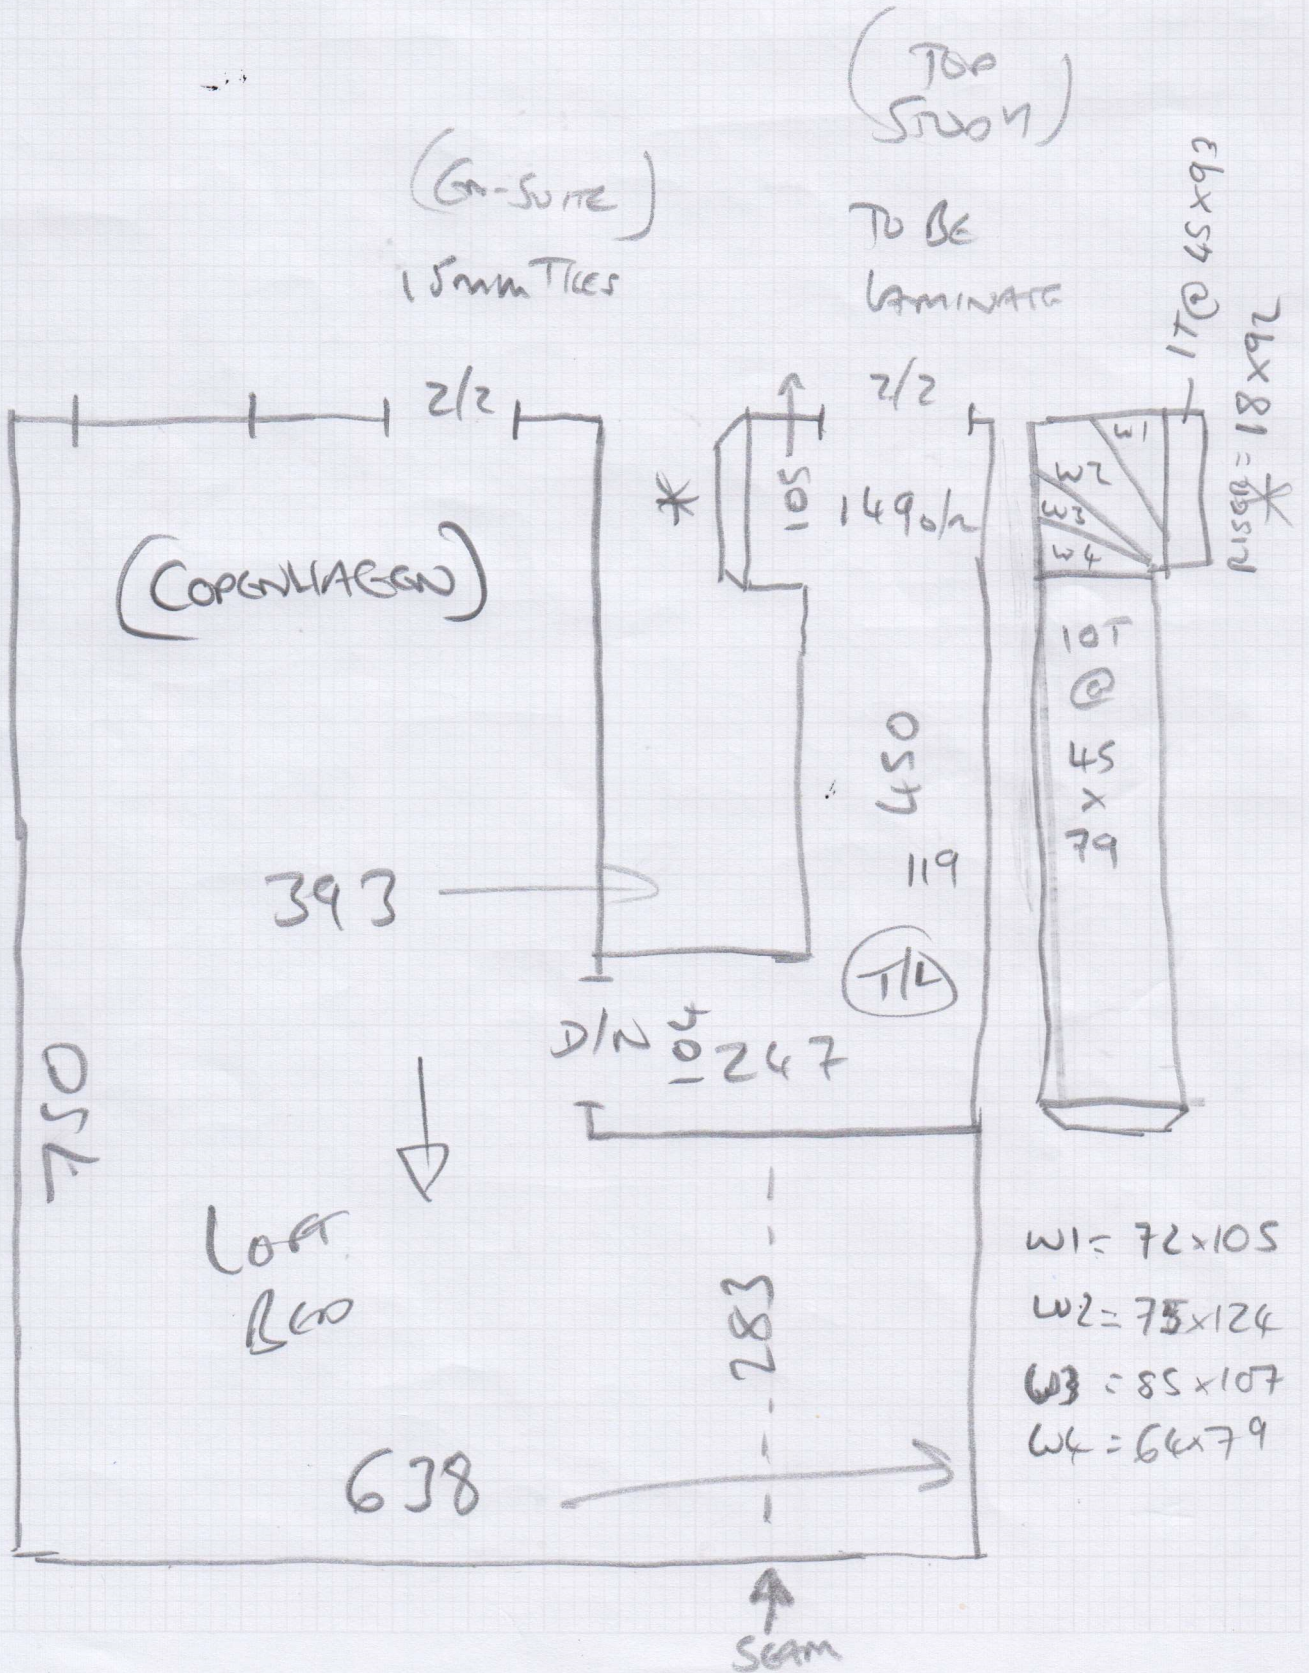 (TOP
STUDY)
(EN-SUITE)
15mm TILES
TO BE
LAMINATE
1T @ 45x93
RISER = 18x92
*
2/2
2/2
*
105
149 o/n
W1
W2
W3
W4
(COPENHAGEN)
10T
@
45
x
79
450
119
393
T/L
D/N
104
247
750
LOFT
BED
283
638
W1 = 72x105
W2 = 75x124
W3 = 85x107
W4 = 64x79
SEAM